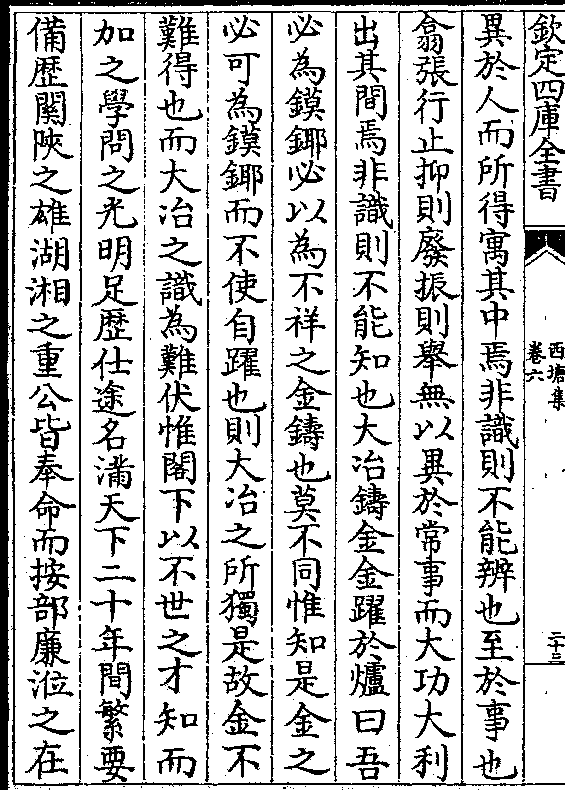 欽定四庫全書
西塘集
卷六
二十三
異於人而所得寓其中焉非識則不能辨也至於事也
翕張行止抑則廢振則舉無以異於常事而大功大利
出其間焉非識則不能知也大冶鑄金金躍於爐曰吾
必為鏌鎁必以為不祥之金鑄也莫不同惟知是金之
必可為鏌鎁而不使自躍也則大冶之所獨是故金不
難得也而大冶之識為難伏惟閣下以不世之才知而
加之學問之光明足歴仕途名滿天下二十年間繁要
備歴關陜之雄湖湘之重公皆奉命而按部廉涖之在